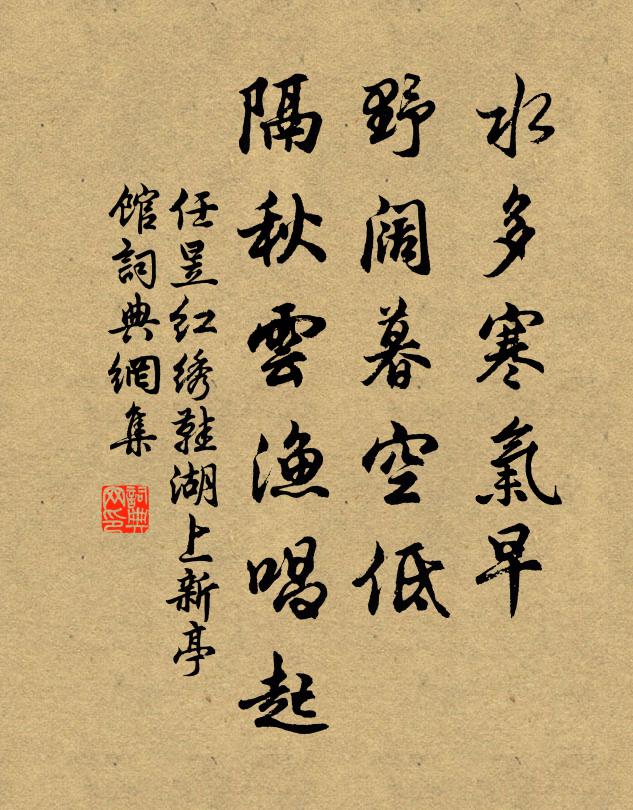 水多寒氣早
野阔暮空低
隔秋雲漁唱起
任昱红绣鞋湖上新亭
馆詞典網集
詞典
网印